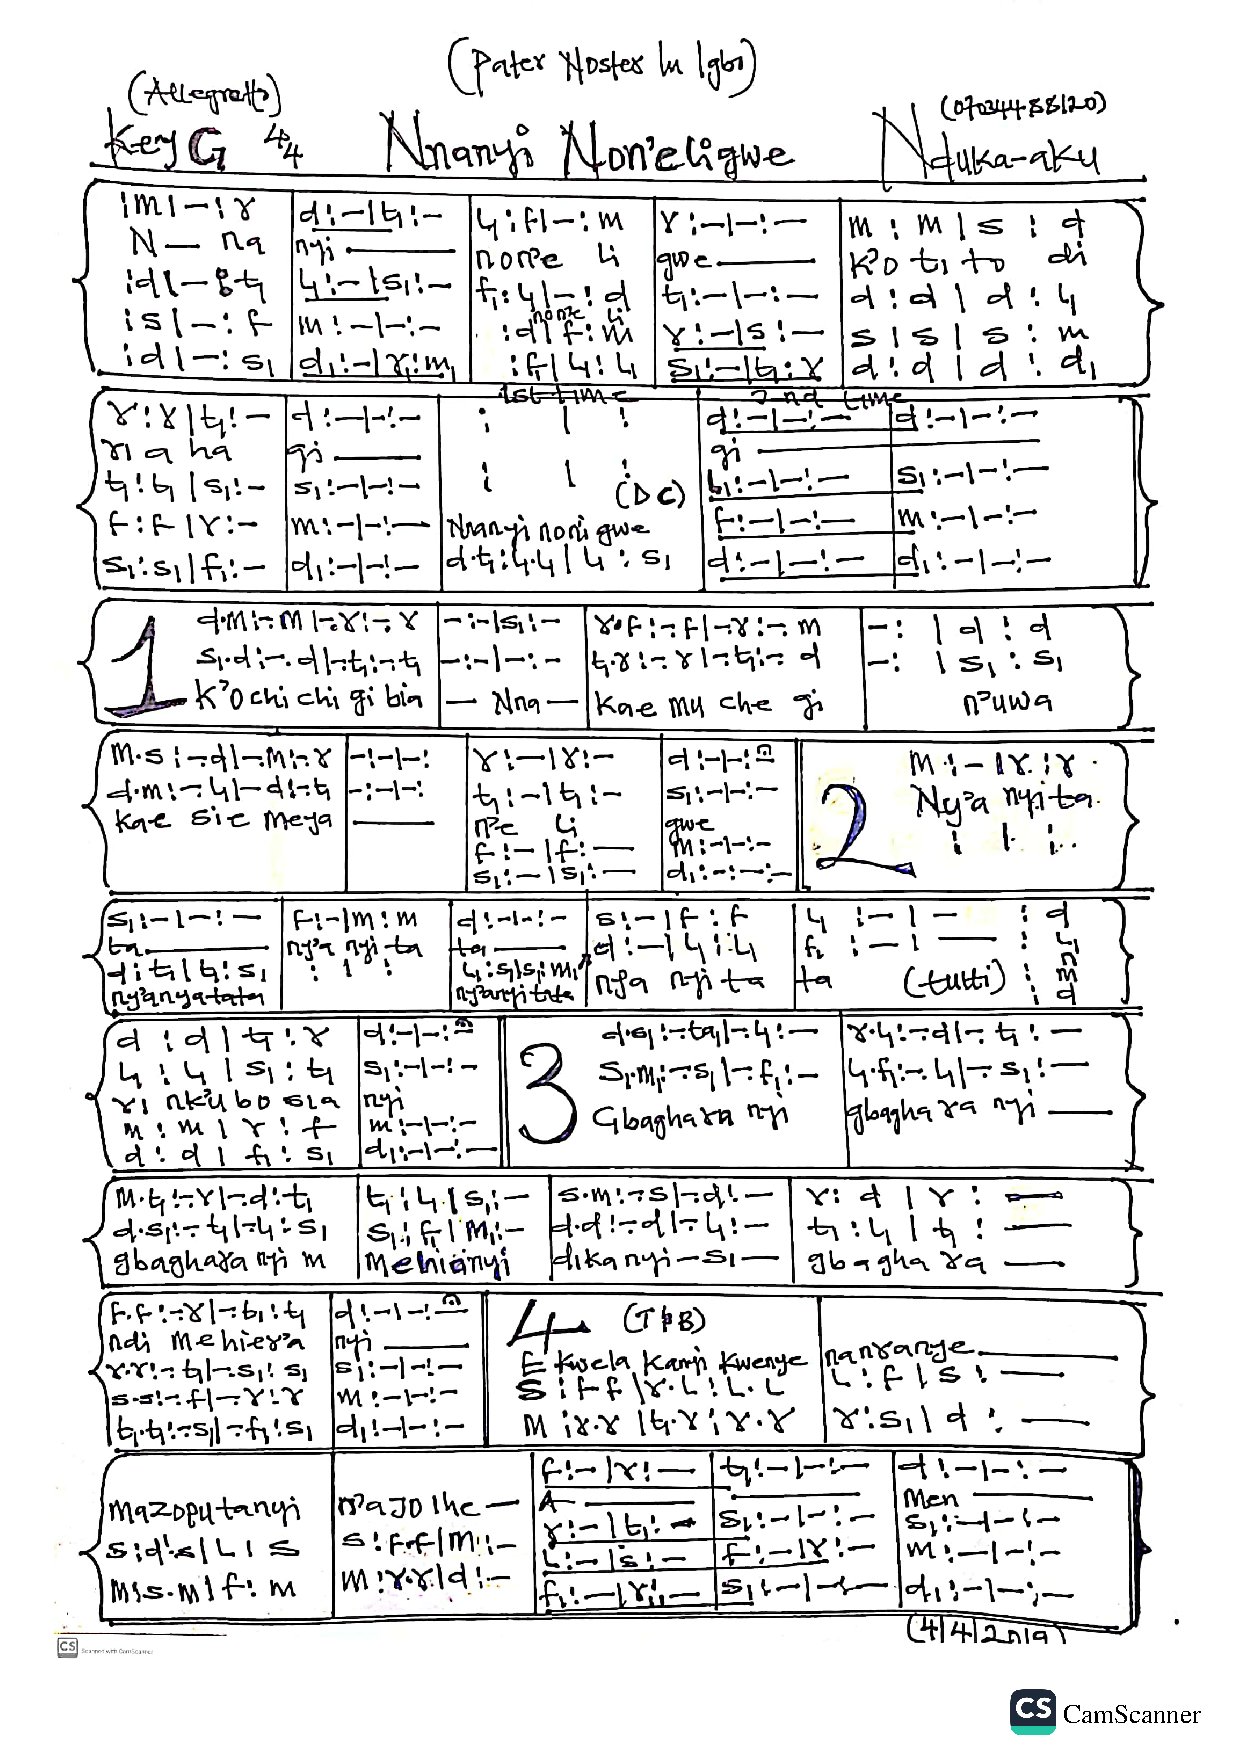 (Pater Noster In Igbo)
(Allegretto)
(07034488120)
Key G 4/4 Nnanyi Non'eligwe Nduka-aku
:m|-:r | d:-|t₁:- | l₁:f|-:m | r:-|-:- | m:m|s:d
N— na nyi — non'e li gwe — k'o ti to di
:d|-:t₁ | l₁:-|s₁:- | f₁:l₁|-:d | t₁:-|-:- | d:d|d:l₁
non'e li
:s|-:f | m:-|-:- | :d|f:m | r:-|s:- | s|s|s:m
:d|-:s₁ | d₁:-|r₁:m₁ | :f₁|l₁:l₁ | s₁:-|t₁:r | d:d|d:d₁
1st time 2nd time
r:r|t₁:- | d:-|-:- | : | : | d:-|-:- | d:-|-:-
ri a ha gi — gi —
t₁:t₁|s₁:- | s₁:-|-:- | : | : (DC) | b₁:-|-:- | s₁:-|-:-
f:f|r:- | m:-|-:- | Nnanyi noni gwe | f:-|-:- | m:-|-:-
s₁:s₁|f₁:- | d₁:-|-:- | d.t₁:l₁.l₁|l₁:s₁ | d:-|-:- | d₁:-|-:-
1
d.m:-.m|-.r:-.r | -:-|s₁:- | r.f:-.f|-.r:-.m | -: |d:d
s₁.d:-.d|-.t₁:-.t₁ | -:-|-:- | t₁.r:-.r|-.t₁:-.d | -: |s₁:s₁
K'o chi chi gi bia — Nna — kae mu che gi n'uwa
m.s:-.d|-.m:-.r | -:-|-: | r:-|r:- | d:-|-:- | 2 m:-|r:r
d.m:-.l₁|-.d:-.t₁ | -:-|-: | t₁:-|t₁:- | s₁:-|-:- | Ny'a nyi ta
kae sie meya — n'e li gwe : | :
f:-|f:- | m:-|-:-
s₁:-|s₁:- | d₁:-|-:-
s₁:-|-:- | f:-|m:m | d:-|-:- | s:-|f:f | l₁:-|-:d
ta — ny'a nyi ta ta — d:-|l₁:l₁ | f₁:-|-:l₁
d:t₁|t₁:s₁ | : | : | l₁:s₁|s₁:m₁ | nya nyi ta ta (tutti) :m
ny'anyatata ny'anyitata :d
d:d|t₁:r | d:-|-:- | 3 d.s₁:-.ta₁|-.l₁:- | r.l₁:-.d|-.t₁:-
l₁:l₁|s₁:t₁ | s₁:-|-:- | s₁.m₁:-.s₁|-.f₁:- | l₁.f₁:-.l₁|-.s₁:-
ri nku bo sia nyi Gbaghara nyi gbagha ra nyi —
m:m|r:f | m:-|-:-
d:d|f₁:s₁ | d₁:-|-:-
m.t₁:-.r|-.d:t₁ | t₁:l₁|s₁:- | s.m:-.s|-.d:- | r:d|r:-
d.s₁:-.t₁|-.l₁:s₁ | s₁:f₁|m₁:- | d.d:-.d|-.l₁:- | t₁:l₁|t₁:-
gbaghara nyi m mehianyi dika nyi — si — gbagha ra —
f.f:-.r|-.b₁:t₁ | d:-|-:- | 4 (T&B)
ndi mehier'a nyi — E kwela kanyi kwenye nanranye —
r.r:-.t₁|-.s₁:s₁ | s₁:-|-:- | s:f.f|r.l:l.l | l:f|s:-
s.s:-.f|-.r:r | m:-|-:- | m:r.r|t₁.r:r.r | r:s₁|d:-
t₁.t₁:-.s₁|-.f₁:s₁ | d₁:-|-:-
f:-|r:- | t₁:-|-:- | d:-|-:-
Mazoputanyi n'ajo ihe — A — Men —
r:-|t₁:- | s₁:-|-:- | s₁:-|-:-
s:d'.s|l|s | s:f.f|m:- | l₁:-|s:- | f:-|r:- | m:-|-:-
m:s.m|f:m | m:r.r|d:- | f₁:-|r₁:- | s₁:-|-:- | d₁:-|-:-
(4/4/2019)
CS Scanned with CamScanner
CS CamScanner